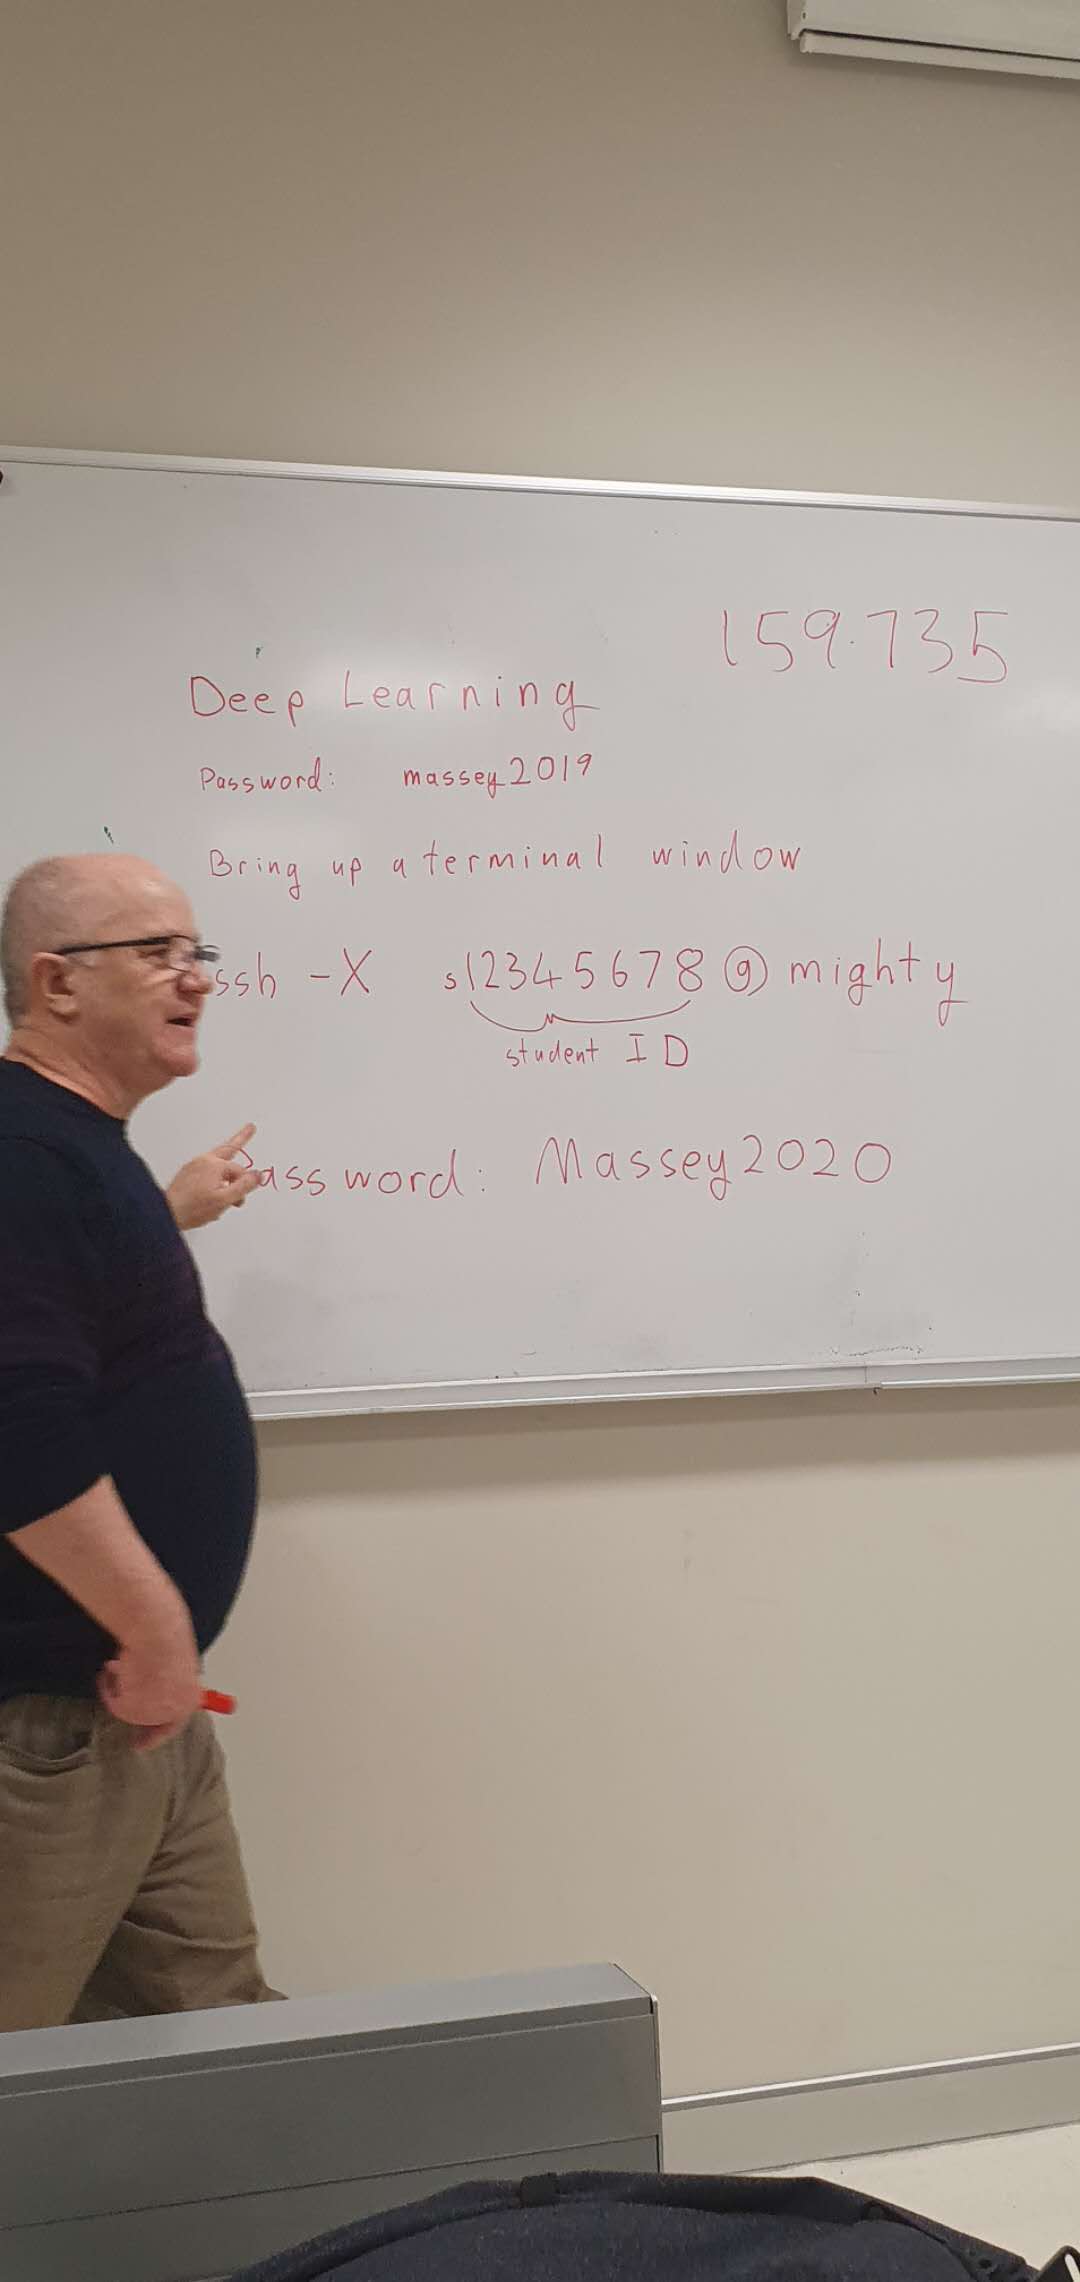 159.735
Deep Learning
Password: massey2019
Bring up a terminal window
ssh -X s12345678@mighty
student ID
Password: Massey2020